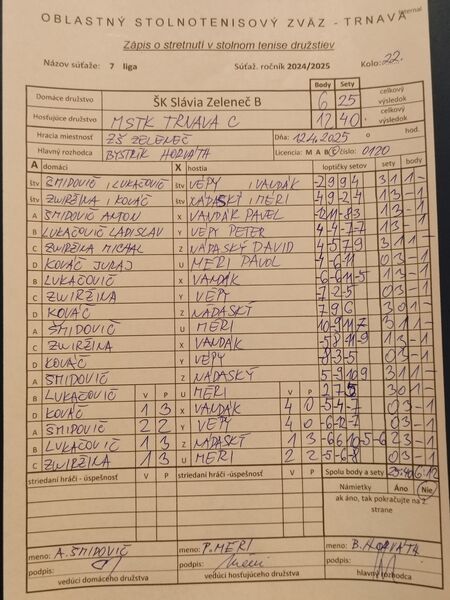 Internal
OBLASTNÝ STOLNOTENISOVÝ ZVÄZ - TRNAVA
Zápis o stretnutí v stolnom tenise družstiev
Názov súťaže: 7 liga Súťaž. ročník 2024/2025 Kolo: 22.
Body Sety
Domáce družstvo ŠK Slávia Zeleneč B 6 25 celkový výsledok
Hosťujúce družstvo MSTK TRNAVA C 12 40 celkový výsledok
Hracia miestnosť ZŠ ZELENEČ Dňa: 12.4.2025 o hod.
Hlavný rozhodca BYSTRÍK HORVÁTH Licencia: M A B C číslo: 0120
A domáci X hostia loptičky setov sety body
štv ŠMIDOVIČ, LUKAČOVIČ štv VÉPY, VANDÁK -2 9 9 4 3 1 1 -
štv ZWIRŽINA, KOVÁČ štv NÁDASKÝ, MERI 4 -9 -2 -4 1 3 - 1
A ŠMIDOVIČ ANTON X VANDÁK PAVEL 1 3 - 1
B LUKAČOVIČ LADISLAV Y VÉPY PETER -4 -4 7 -7 1 3 - 1
C ZWIRŽINA MICHAL Z NÁDASKÝ DAVID 3 1 1 -
D KOVÁČ JURAJ U MERI PAVOL -4 -6 -11 0 3 - 1
B LUKAČOVIČ X VANDÁK 1 3 - 1
C ZWIRŽINA Y VÉPY -7 -2 -5 0 3 - 1
D KOVÁČ Z NÁDASKÝ 7 9 6 3 0 1 -
A ŠMIDOVIČ U MERI 3 1 1 -
C ZWIRŽINA X VANDÁK 1 3 - 1
D KOVÁČ Y VÉPY -8 -3 -5 0 3 - 1
A ŠMIDOVIČ Z NÁDASKÝ 3 1 1 -
B LUKAČOVIČ V P U MERI V P 3 0 1 -
D KOVÁČ 1 3 X VANDÁK 4 0 -5 -4 -7 0 3 - 1
A ŠMIDOVIČ 2 2 Y VÉPY 4 0 0 3 - 1
B LUKAČOVIČ 1 3 Z NÁDASKÝ 1 3 2 3 - 1
C ZWIRŽINA 1 3 U MERI 2 2 -5 -6 -8 0 3 - 1
striedaní hráči - úspešnosť V P striedaní hráči - úspešnosť V P Spolu body a sety 25:40 6:12
Námietky Áno Nie
ak áno, tak pokračujte na 2. strane
meno: A. ŠMIDOVIČ meno: P. MERI meno: B. HORVÁTH
podpis: podpis: podpis:
vedúci domáceho družstva vedúci hosťujúceho družstva hlavný rozhodca